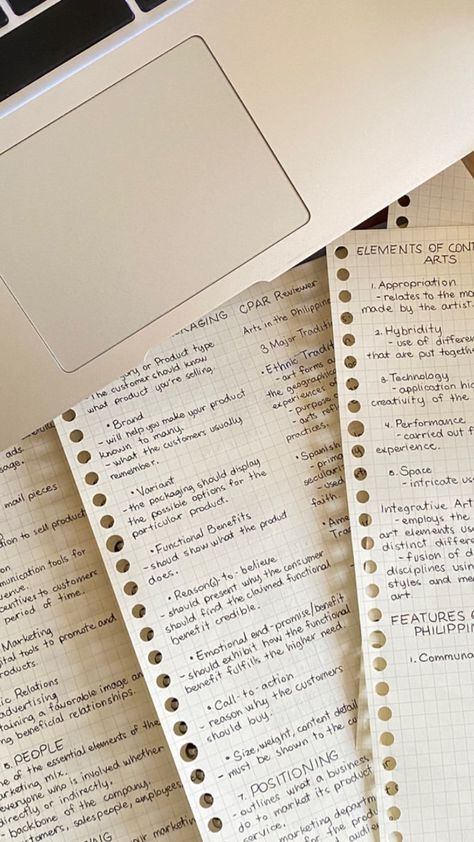 ads.
sage.
mail pieces
to sell product
munication tools for
centives to customers
period of time.
Marketing
tools to promote and
products.
Relations
advertising
taining a favorable image an
beneficial relationships.
8. PEOPLE
of the essential elements of the
marketing mix.
everyone who is involved whether
directly or indirectly.
- backbone of the company.
customers, salespeople, employees,
your market
PACKAGING
or Product type
the customer should know
what product you're selling.
• Brand
- will help you make your product
known to many.
- what the customers usually
remember.
• Variant
- the packaging should display
the possible options for the
particular product.
• Functional Benefits
- should show what the product
does.
• Reason(s) to - believe
- should present why the consumer
should find the claimed functional
benefit credible.
• Emotional end-promise/benefit
- should exhibit how the functional
benefit fulfills the higher need.
• Call - to - action
- reason why the customers
should buy.
• Size, weight, content detail
- must be shown to the
7. POSITIONING
- outlines what a business
do to market its product
service.
marketing department
for the
audien
CPAR Reviewer
Arts in the Philippine
3 Major Tradit
• Ethnic Tradit
- art forms
the geographical
experiences of
- purpose
- arts
practices.
• Spanish
- prim
secular
- used
faith
• Ame
Trad
ELEMENTS OF CONT
ARTS
1. Appropriation
- relates to the
made by the artist.
2. Hybridity
- use of differen
that are put together
3. Technology
- application
creativity of the
4. Performance
- carried out
experience.
5. Space
- intricate
Integrative Art
- employs the
art elements
distinct differe
- fusion of
disciplines using
styles and
art.
FEATURES
PHILIPPIN
1. Communa